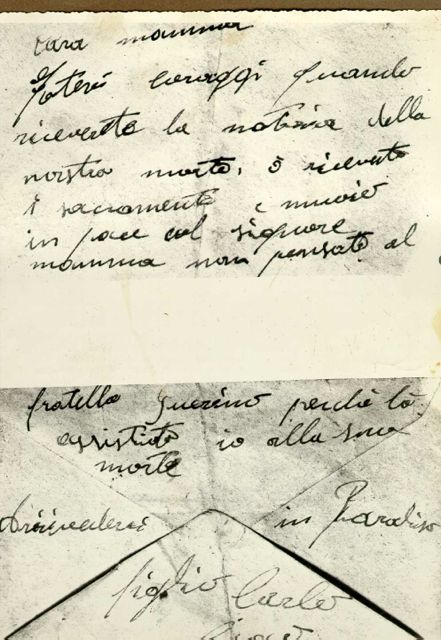 cara mamma
fatevi coraggi quando
riceverete la notizia della
nostra morte. ò ricevuto
i sacramenti e muoio
in pace col signore
mamma non pensate al
fratello Guerino perché lò
assistito io alla sua
morte
Arrivederci in Paradiso
figlio Carlo